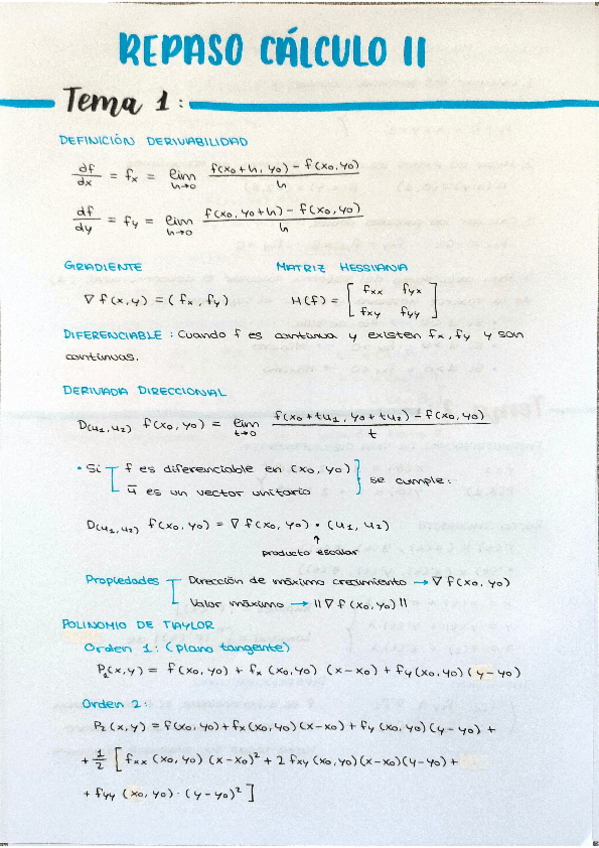 REPASO CÁLCULO II
Tema 1:
DEFINICIÓN DERIVABILIDAD
df/dx = fx = lim h→0 f(x0+h, y0) - f(x0, y0) / h
df/dy = fy = lim h→0 f(x0, y0+h) - f(x0, y0) / h
GRADIENTE
∇f(x,y) = (fx, fy)
MATRIZ HESSIANA
H(f) = [ fxx fyx
fxy fyy ]
DIFERENCIABLE: Cuando f es continua y existen fx, fy y son
continuas.
DERIVADA DIRECCIONAL
D(u1, u2) f(x0, y0) = lim t→0 f(x0+tu1, y0+tu2) - f(x0, y0) / t
• Si f es diferenciable en (x0, y0)
ū es un vector unitario
se cumple:
D(u1, u2) f(x0, y0) = ∇f(x0, y0) • (u1, u2)
↑
producto escalar
Propiedades Dirección de máximo crecimiento → ∇f(x0, y0)
Valor máximo → ||∇f(x0, y0)||
POLINOMIO DE TAYLOR
Orden 1: (plano tangente)
P1(x,y) = f(x0, y0) + fx(x0, y0) (x-x0) + fy(x0, y0)(y-y0)
Orden 2:
P2(x,y) = f(x0, y0) + fx(x0, y0)(x-x0) + fy(x0, y0)(y-y0) +
+ 1/2 [ fxx(x0, y0)(x-x0)² + 2fxy(x0, y0)(x-x0)(y-y0) +
+ fyy(x0, y0)·(y-y0)² ]